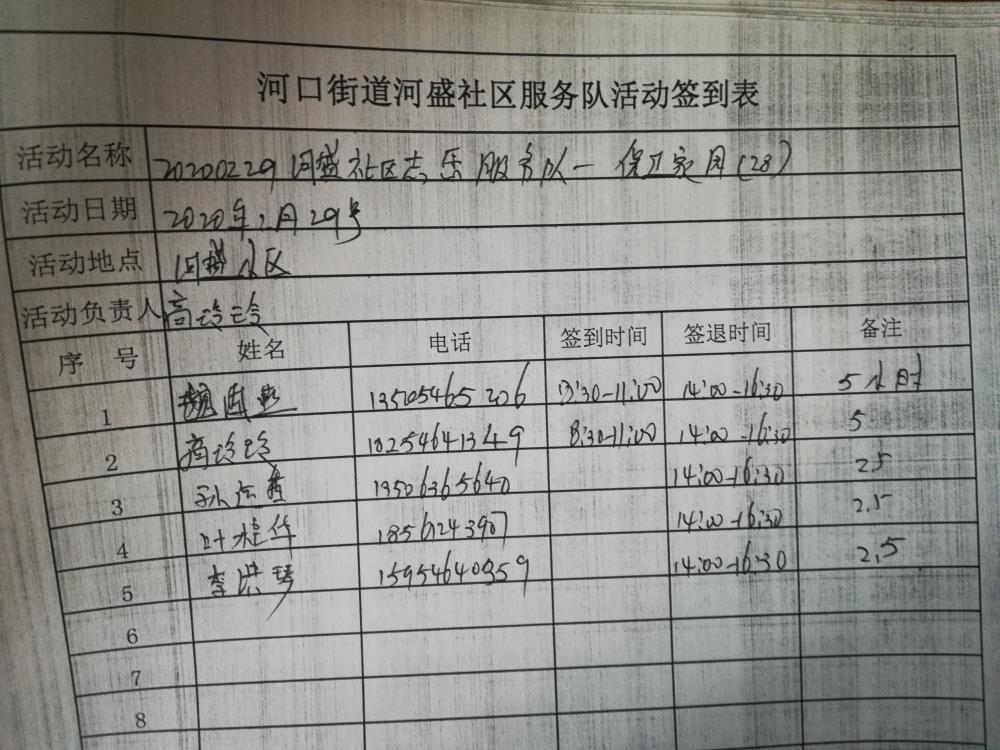 河口街道河盛社区服务队活动签到表
活动名称 20200229河盛社区志愿服务队一保卫家园(28)
活动日期 2020年2月29号
活动地点 河盛小区
活动负责人 高玲玲
序 号 姓名 电话 签到时间 签退时间 备注
1 13505465206 8:30-11:00 14:00-16:30 5小时
2 高玲玲 18254641349 8:30-11:00 14:00-16:30 5
3 13506365640 14:00-16:30 2.5
4 叶桂华 18561243907 14:00-16:30 2.5
5 李洪琴 15954640359 14:00-16:30 2.5
6
7
8